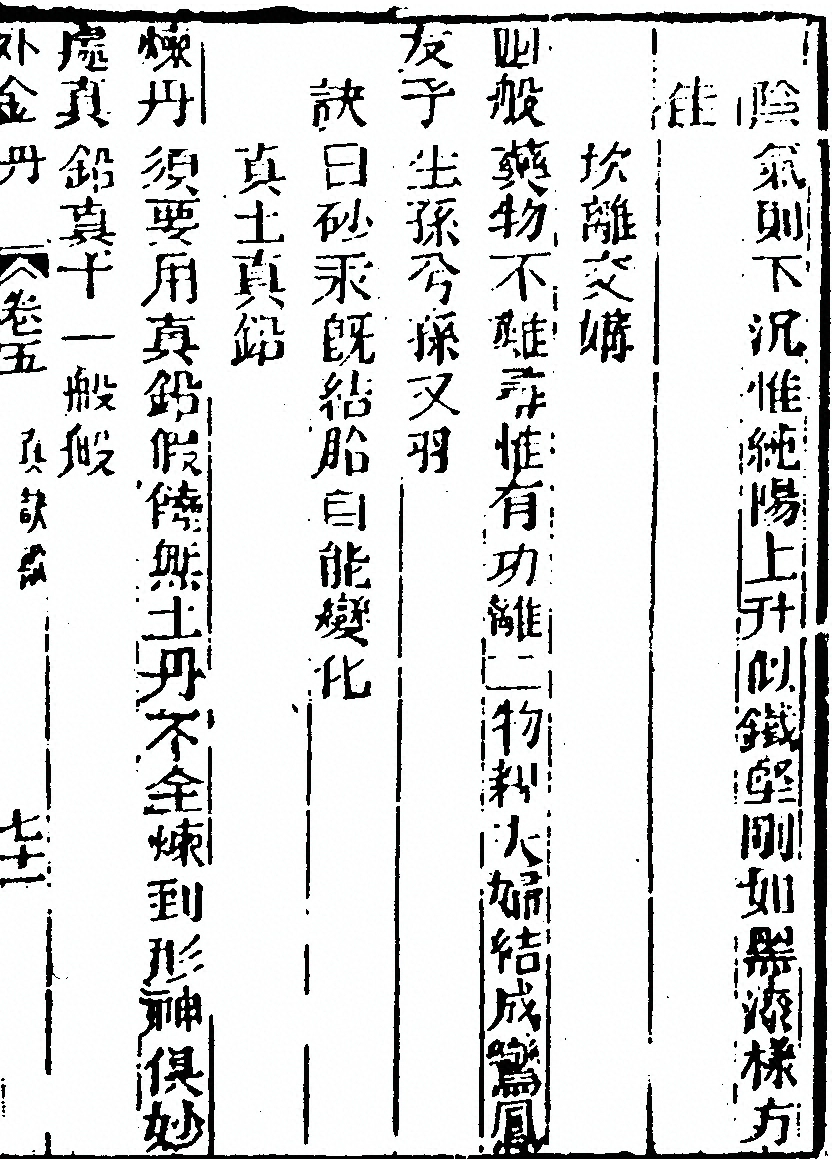 陰氣則下沉惟純陽上升似鐵堅剛如黑漆樣方
佳
坎離交媾
四般藥物不難尋惟有功離二物親夫婦結成鸞鳳
友子生孫兮孫又羽
訣曰砂汞旣結胎自能變化
真土真鉛
煉丹須要用真鉛假僥無土丹不全煉到形神俱妙
處真鉛真十一般般
外金丹 卷五 七十一